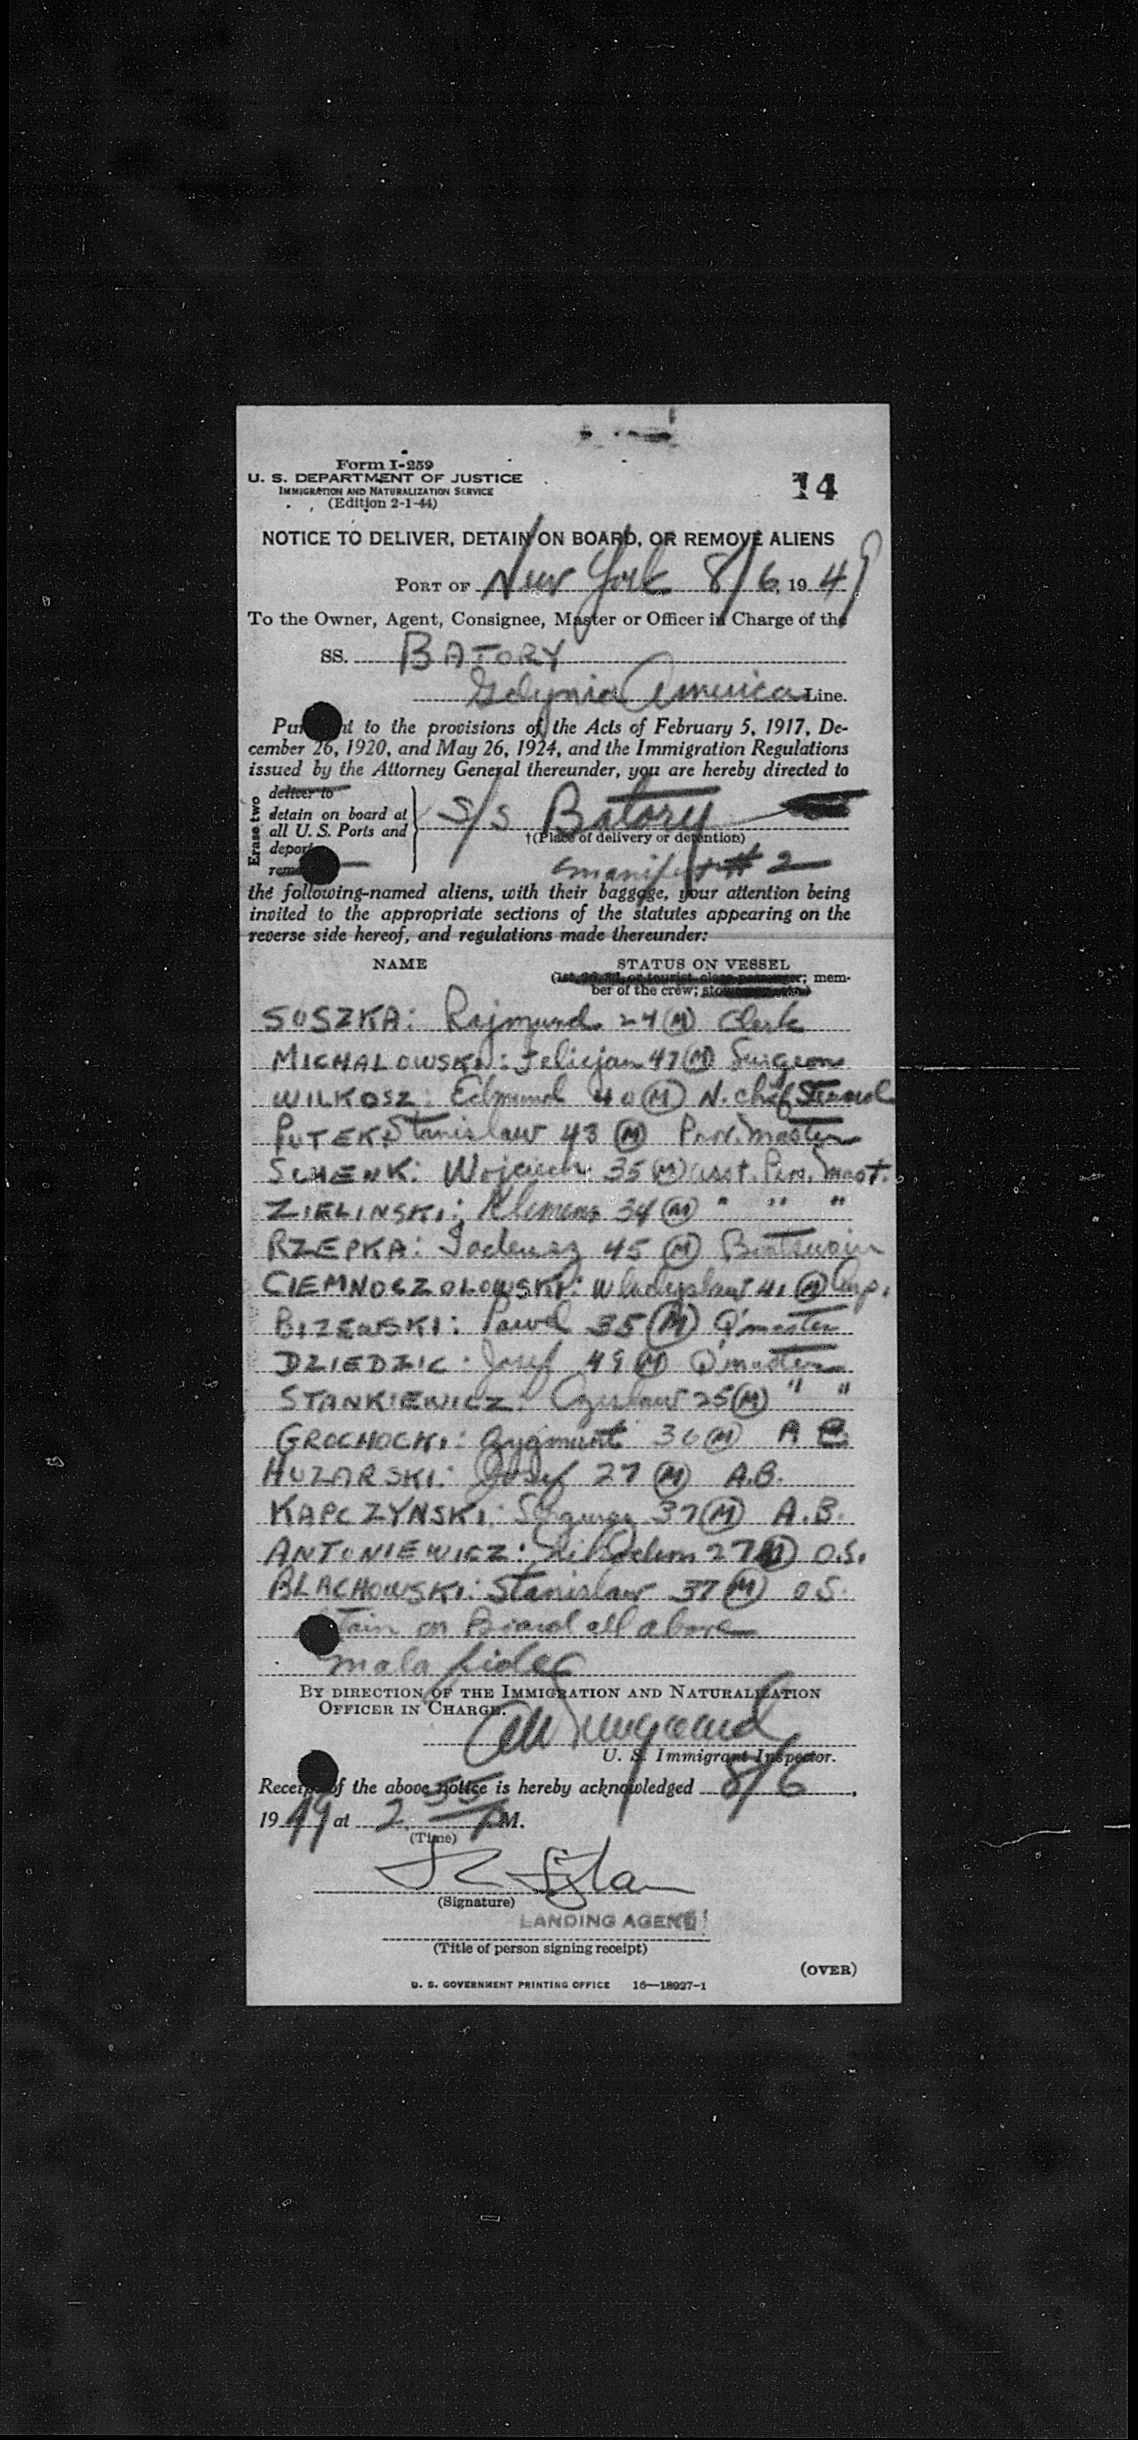 Form I-259
U. S. DEPARTMENT OF JUSTICE
IMMIGRATION AND NATURALIZATION SERVICE
(Edition 2-1-44)
14
NOTICE TO DELIVER, DETAIN ON BOARD, OR REMOVE ALIENS
PORT OF New York 8/6, 1949
To the Owner, Agent, Consignee, Master or Officer in Charge of the
SS. BATORY
Gdynia America Line.
Pursuant to the provisions of the Acts of February 5, 1917, De-
cember 26, 1920, and May 26, 1924, and the Immigration Regulations
issued by the Attorney General thereunder, you are hereby directed to
Erase two
deliver to
detain on board at
all U. S. Ports and
deport
S/S Batory
†(Place of delivery or detention)
manifest # 2
the following-named aliens, with their baggage, your attention being
invited to the appropriate sections of the statutes appearing on the
reverse side hereof, and regulations made thereunder:
NAME STATUS ON VESSEL
(1st, 2d, 3d, or tourist class passenger; mem-
ber of the crew; stowaway
SUSZKA: Rajmund 24 (M) Clerk
MICHALOWSKI: Felicjan 47 (M) Surgeon
WILKOSZ: Edmund 40 (M) N. chief Steward
PUTEK: Stanislaw 43 (M) Prov. Master
SCHENK: Wojciech 35 (M) asst. Prov. Mast.
ZIELINSKI: Klemens 34 (M) " " "
RZEPKA: Tadeusz 45 (M) Boatswain
CIEMNOCZOLOWSKI: Wladyslaw 41 (M) Carp.
BIZEWSKI: Pawel 35 (M) Q'master
DZIEDZIC: Josef 49 (M) Q'master
STANKIEWICZ: Czeslaw 25 (M) " "
GROCHOCKI: Zygmunt 36 (M) A B
HUZARSKI: Josef 27 (M) A.B.
KAPCZYNSKI: 37 (M) A.B.
ANTONIEWICZ: 27 (M) O.S.
BLACHOWSKI: Stanislaw 37 (M) O.S.
Detain on Board all above
mala fides
BY DIRECTION OF THE IMMIGRATION AND NATURALIZATION
OFFICER IN CHARGE.
U. S. Immigrant Inspector.
Receipt of the above notice is hereby acknowledged 8/6,
1949 at 2.55 P.M.
(Time)
(Signature)
LANDING AGENT
(Title of person signing receipt)
(OVER)
U. S. GOVERNMENT PRINTING OFFICE 16—18927-1